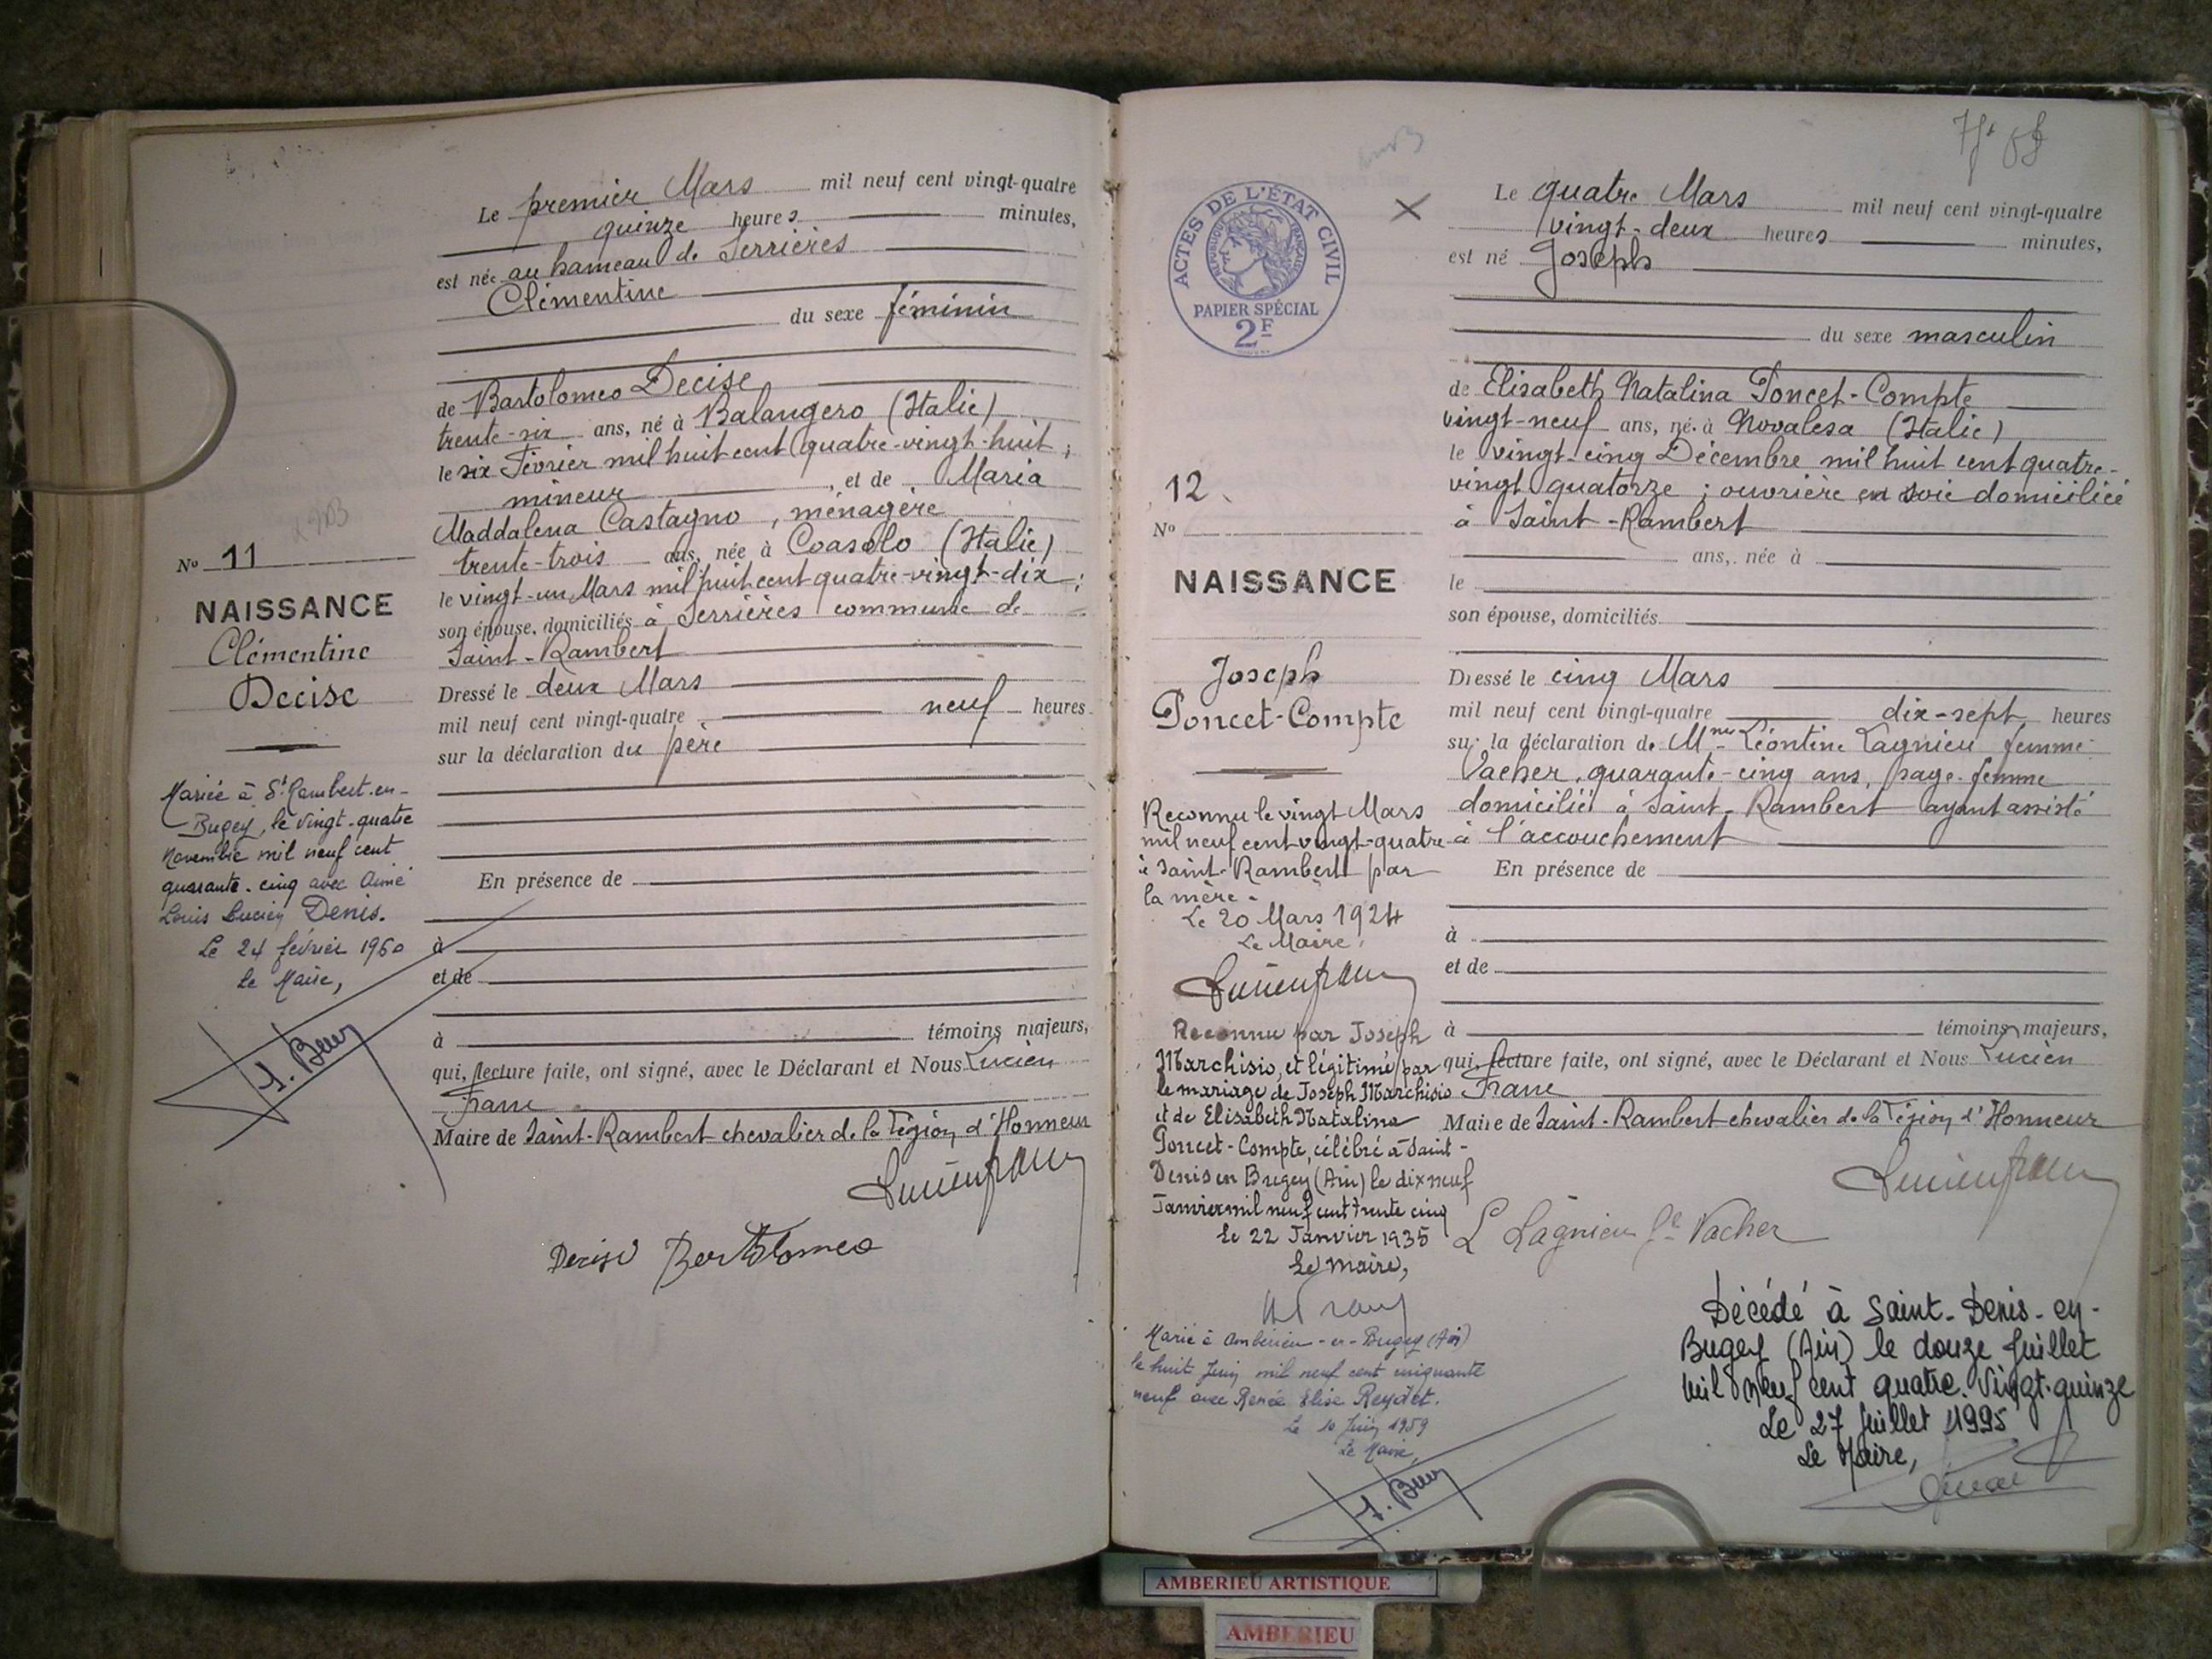 Le premier Mars mil neuf cent vingt-quatre
quinze heures minutes,
est née au hameau de Serrières
Clémentine
du sexe féminin
de Bartolomeo Decise
trente-six ans, né à Balangero (Italie)
le six Février mil huit cent quatre-vingt-huit ;
mineur , et de Maria
Maddalena Castagno , ménagère
trente-trois ans, née à Coasolo (Italie)
le vingt-un Mars mil huit cent quatre-vingt-dix ;
son épouse, domiciliés à Serrières commune de
Saint-Rambert
Dressé le deux Mars
mil neuf cent vingt-quatre neuf heures
sur la déclaration du père
En présence de
à
et de
à témoins majeurs,
qui, lecture faite, ont signé, avec le Déclarant et Nous Lucien
Franc
Maire de Saint-Rambert chevalier de la Légion d'Honneur
Decise Bartolomeo
No 11
NAISSANCE
Clémentine
Decise
Mariée à St Rambert-en-
Bugey, le vingt-quatre
Novembre mil neuf cent
quarante-cinq avec Aimé
Louis Lucien Denis.
Le 24 février 1960
Le Maire,
ACTES DE L'ÉTAT CIVIL
RÉPUBLIQUE FRANÇAISE
PAPIER SPÉCIAL
2F
12
No
NAISSANCE
Joseph
Poncet-Compte
Reconnu le vingt Mars
mil neuf cent vingt-quatre
à Saint-Rambert par
la mère.
Le 20 Mars 1924
Le Maire,
Reconnu par Joseph
Marchisio, et légitimé par
le mariage de Joseph Marchisio
et de Elisabeth Natalina
Poncet-Compte, célébré à Saint-
Denis en Bugey (Ain) le dix neuf
Janvier mil neuf cent trente cinq
Le 22 Janvier 1935
Le Maire,
Marié à Ambérieu-en-Bugey (Ain)
le huit Juin mil neuf cent cinquante
neuf avec Renée Elise Reydet.
Le 10 Juin 1959
Le Maire,
Le quatre Mars mil neuf cent vingt-quatre
vingt-deux heures minutes,
est né Joseph
du sexe masculin
de Elisabeth Natalina Poncet-Compte
vingt-neuf ans, né à Novalesa (Italie)
le vingt-cinq Décembre mil huit cent quatre-
vingt quatorze ; ouvrière en soie domiciliée
à Saint-Rambert
ans, née à
le
son épouse, domiciliés
Dressé le cinq Mars
mil neuf cent vingt-quatre dix-sept heures
sur la déclaration de Mme Léontine Lagnieu femme
Vacher, quarante-cinq ans, sage-femme
domiciliée à Saint-Rambert ayant assisté
à l'accouchement
En présence de
à
et de
à témoins majeurs,
qui, lecture faite, ont signé, avec le Déclarant et Nous Lucien
Franc
Maire de Saint-Rambert chevalier de la Légion d'Honneur
L Lagnieu fe Vacher
Décédé à Saint-Denis-en-
Bugey (Ain) le douze Juillet
mil neuf cent quatre-vingt-quinze
Le 27 Juillet 1995
Le Maire,
AMBERIEU ARTISTIQUE
AMBERIEU